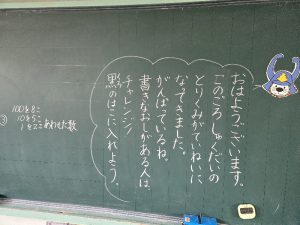 おはようございます。
このごろしゅくだいの
とりくみがていねいに
なってきました。
がんばっているね。
書きなおしがある人は、
チャレンジ!
黙のはこに入れよう。
③
100を8こ
10を5こ
1を2こあわせた数